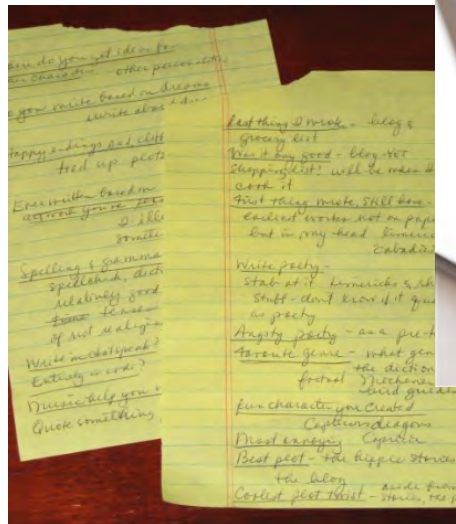 where do you get ideas for
your characters other personalities
Do you write based on dreams
write about
Happy endings and cliff
tied up plots
Ever written based on
artwork you've
I
Spelling & grammar
spellbind,
relatively good
tense
of not realizing
Write in chatspeak?
Entirely in code?
Music help you
Quote something
Last thing I wrote - blog &
grocery list
Was it any good - blog yes
shopping list? will be when I
cook it
First thing wrote, still have -
earliest works not on paper
but in my head limericks
Write poetry -
stab at it limericks &
stuff - don't know if it
as poetry
Angsty poetry - as a pre-t
favorite genre - what gen
the diction
factual
bird guides
fun character you created
dragons
Most annoying Capricia
Best plot - the hippie stories
the blog
Coolest plot twist - aside from
stories, the